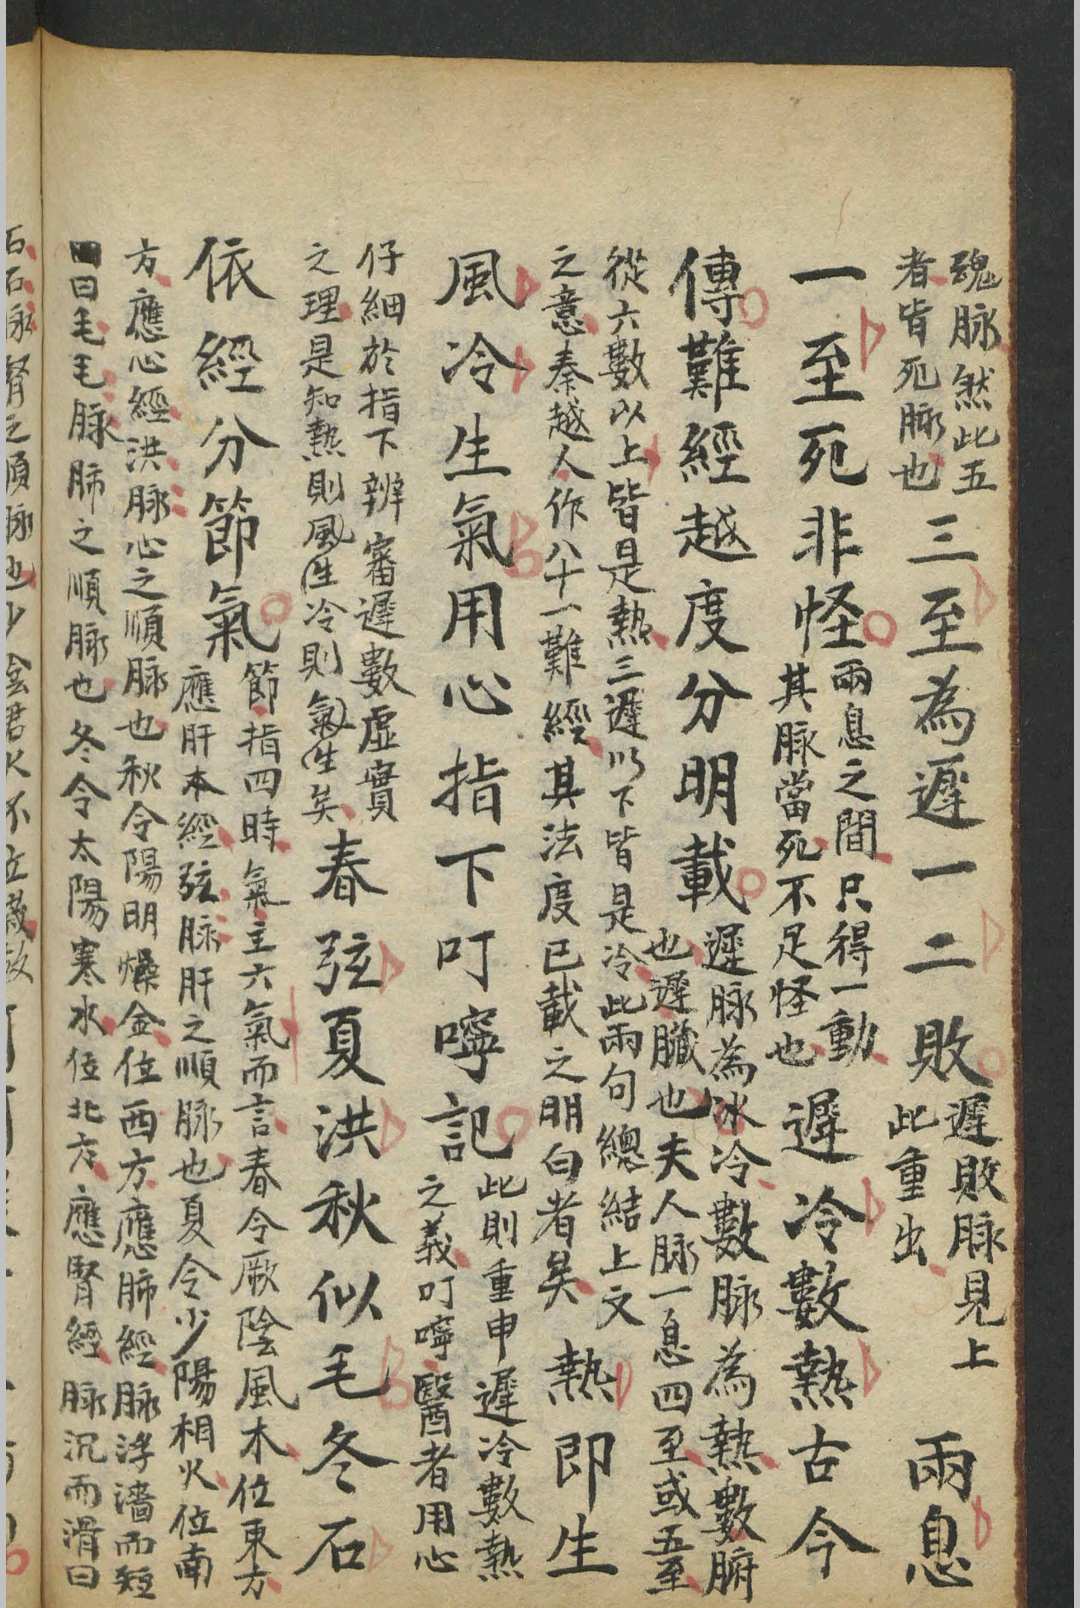 魂脉然此五
者皆死脉也
三至為遲一二敗
遲敗脉見上
此重出
兩息
一至死非怪
兩息之間只得一動
其脉當死不足怪也
遲冷數熱古今
傳難經越度分明載
遲脉為冰冷數脉為熱數腑
也遲臟也夫人脉一息四至或五至
從六數以上皆是熱三遲以下皆是冷此兩句總結上文
之意秦越人作八十一難經其法度已載之明白者矣
熱即生
風冷生氣用心指下叮嚀記
此則重申遲冷數熱
之義叮嚀醫者用心
仔細於指下辨審遲數虛實
之理是知熱則風生冷則氣生矣
春弦夏洪秋似毛冬石
依經分節氣
節指四時氣主六氣而言春令厥陰風木位東方
應肝本經弦脉肝之順脉也夏令少陽相火位南
方應心經洪脉心之順脉也秋令陽明燥金位西方應肺經脉浮濇而短
曰毛毛脉肺之順脉也冬令太陽寒水位北方應腎經脉沉而滑曰
石石脉腎之順脉也少陰君火不立